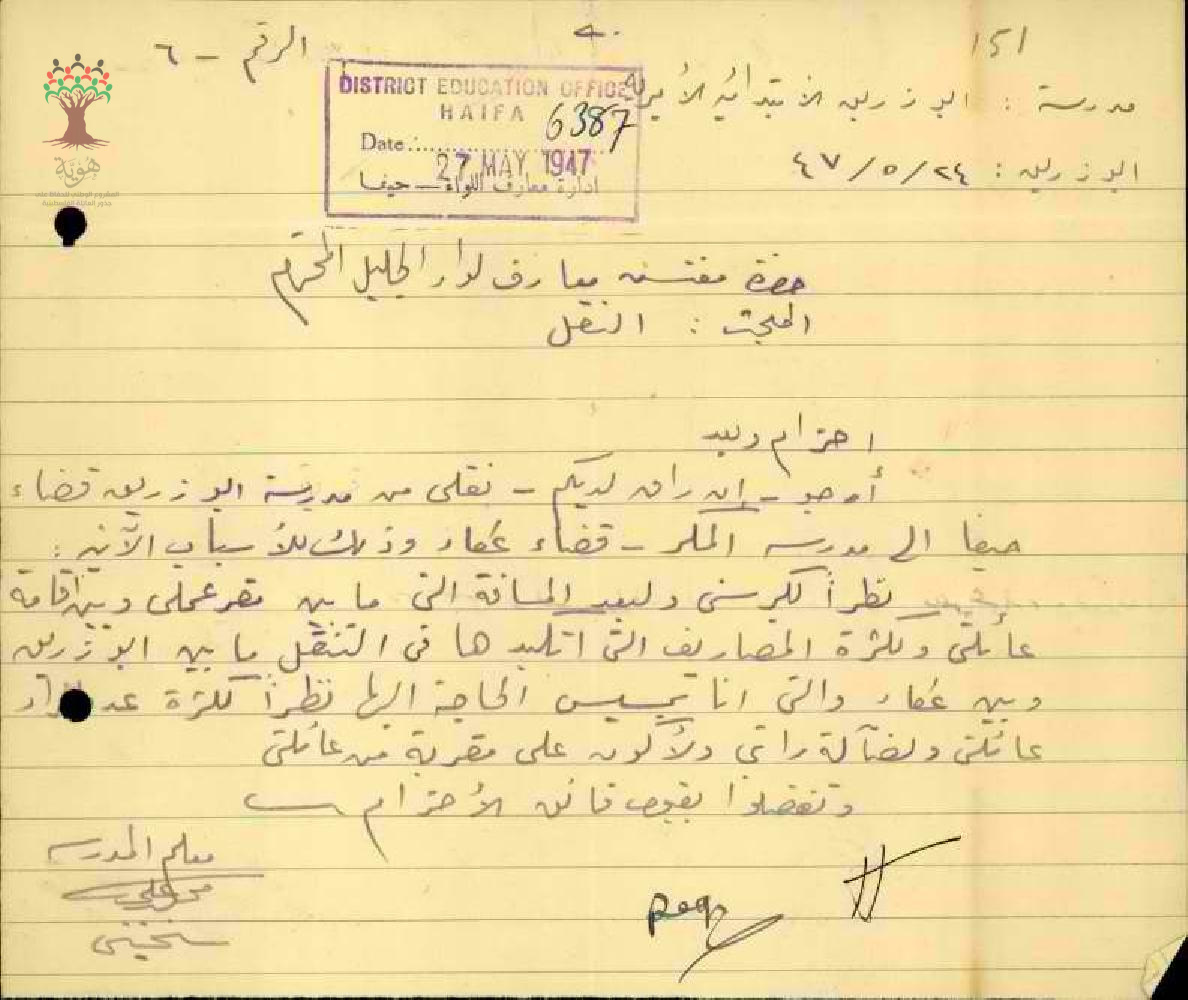 ١٥١
الرقم – ٦
مدرسة : ابو زريق الابتدائية الأميرية
ابو زريق : ٢٤ / ٥ / ٤٧
DISTRICT EDUCATION OFFICE
HAIFA
6387
Date
27 MAY 1947
ادارة معارف اللواء – حيفا
هُويّة
حضرة مفتش معارف لواء الجليل المحترم
المبحث : النقل
احترام وبعد
أرجو – إن راق لديكم – نقلي من مدرسة ابو زريق قضاء
حيفا الى مدرسة المكر – قضاء عكاء وذلك للأسباب الآتية :
نظراً لكبر سني ولبعد المسافة التي ما بين مقر عملي وبين اقامة
عائلتي ولكثرة المصاريف التي اتكبدها في التنقل ما بين ابو زريق
وبين عكاء والتي انا بمسيس الحاجة اليها نظراً لكثرة عدد افراد
عائلتي ولضآلة راتبي ولأكون على مقربة من عائلتي
وتفضلوا بقبول فائق الأحترام
معلم المدرسة